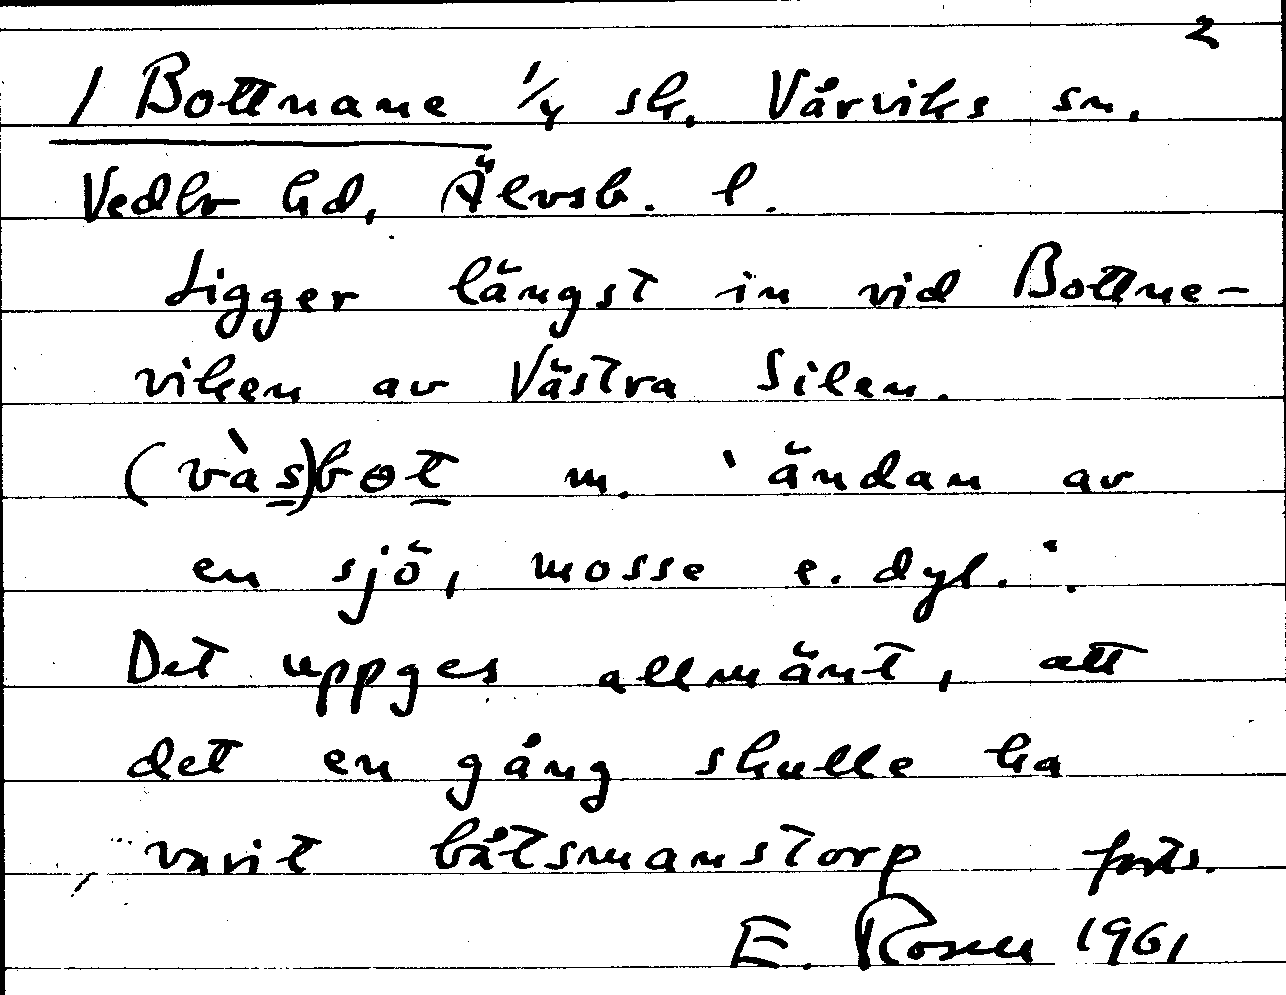 2
/ Bottnane 1/4 sk. Vårviks sn.
Vedbo hd, Älvsb. l.
Ligger längst in vid Bottne-
viken av Västra Silen.
(vàs)bɵt m. 'ändan av
en sjö, mosse e. dyl.'.
Det uppges allmänt, att
det en gång skulle ha
varit båtsmanstorp forts.
E. Rosell 1961